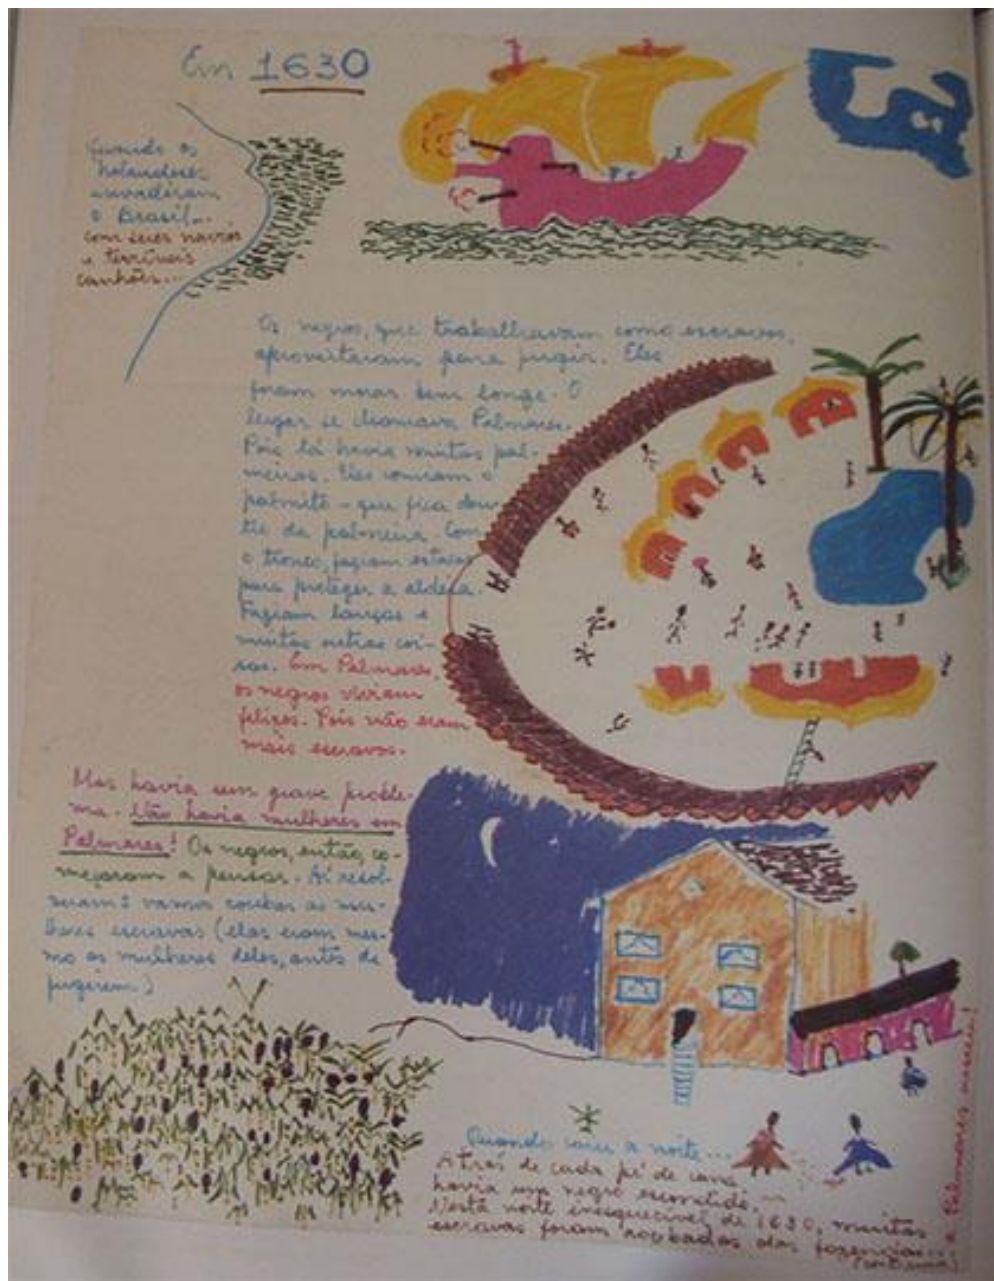 Em 1630
quando os
holandeses
invadiram
o Brasil...
com seus navios
e terríveis
canhões...
Os negros, que trabalhavam como escravos,
aproveitaram para fugir. Eles
foram morar bem longe. O
lugar se chamava Palmares.
Pois lá havia muitas pal-
meiras. Eles comiam o
palmito - que fica den-
tro da palmeira. Com
o tronco, faziam estacas
para proteger a aldeia.
Faziam lanças e
muitas outras coi-
sas. Em Palmares,
os negros viviam
felizes. Pois não eram
mais escravos.
Mas havia um grave proble-
ma. Não havia mulheres em
Palmares! Os negros, então, co-
meçaram a pensar. Aí resol-
veram: vamos roubar as mu-
lheres escravas (elas eram mes-
mo as mulheres deles, antes de
fugirem)
Quando caiu a noite...
Atrás de cada pé de cana
havia um negro escondido.
Nesta noite inesquecível de 1630, muitas
escravas foram roubadas das fazendas...
e Palmares